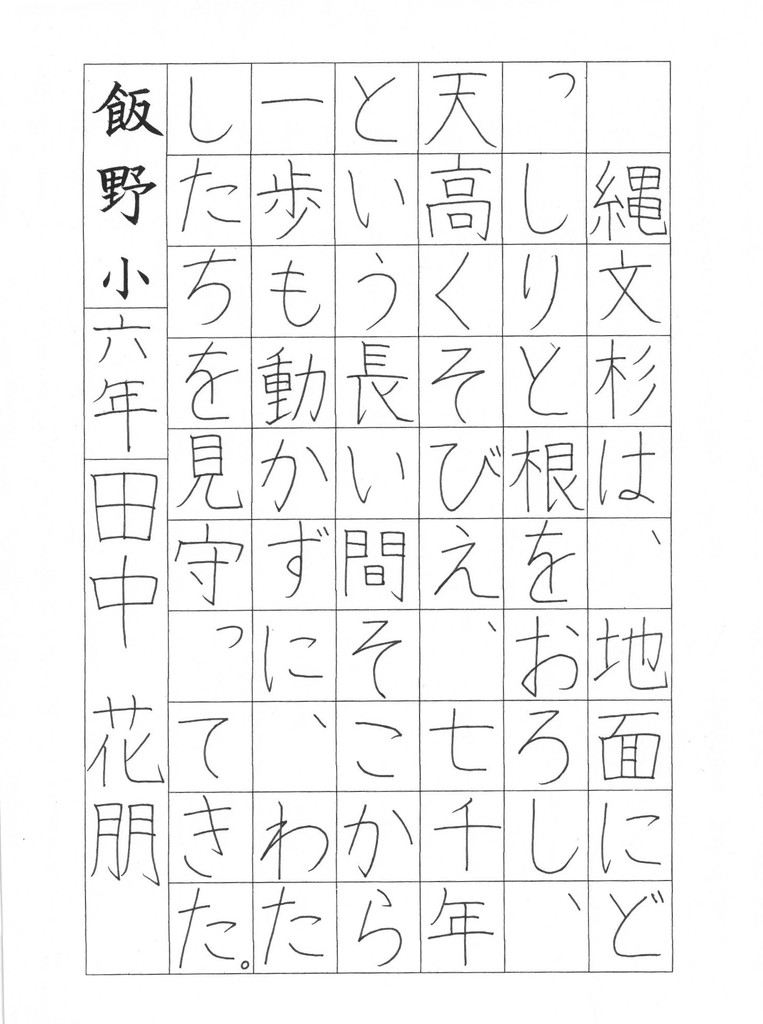 縄文杉は、地面にど
っしりと根をおろし、
天高くそびえ、七千年
という長い間そこから
一歩も動かずに、わた
したちを見守ってきた。
飯野小六年田中 花朋